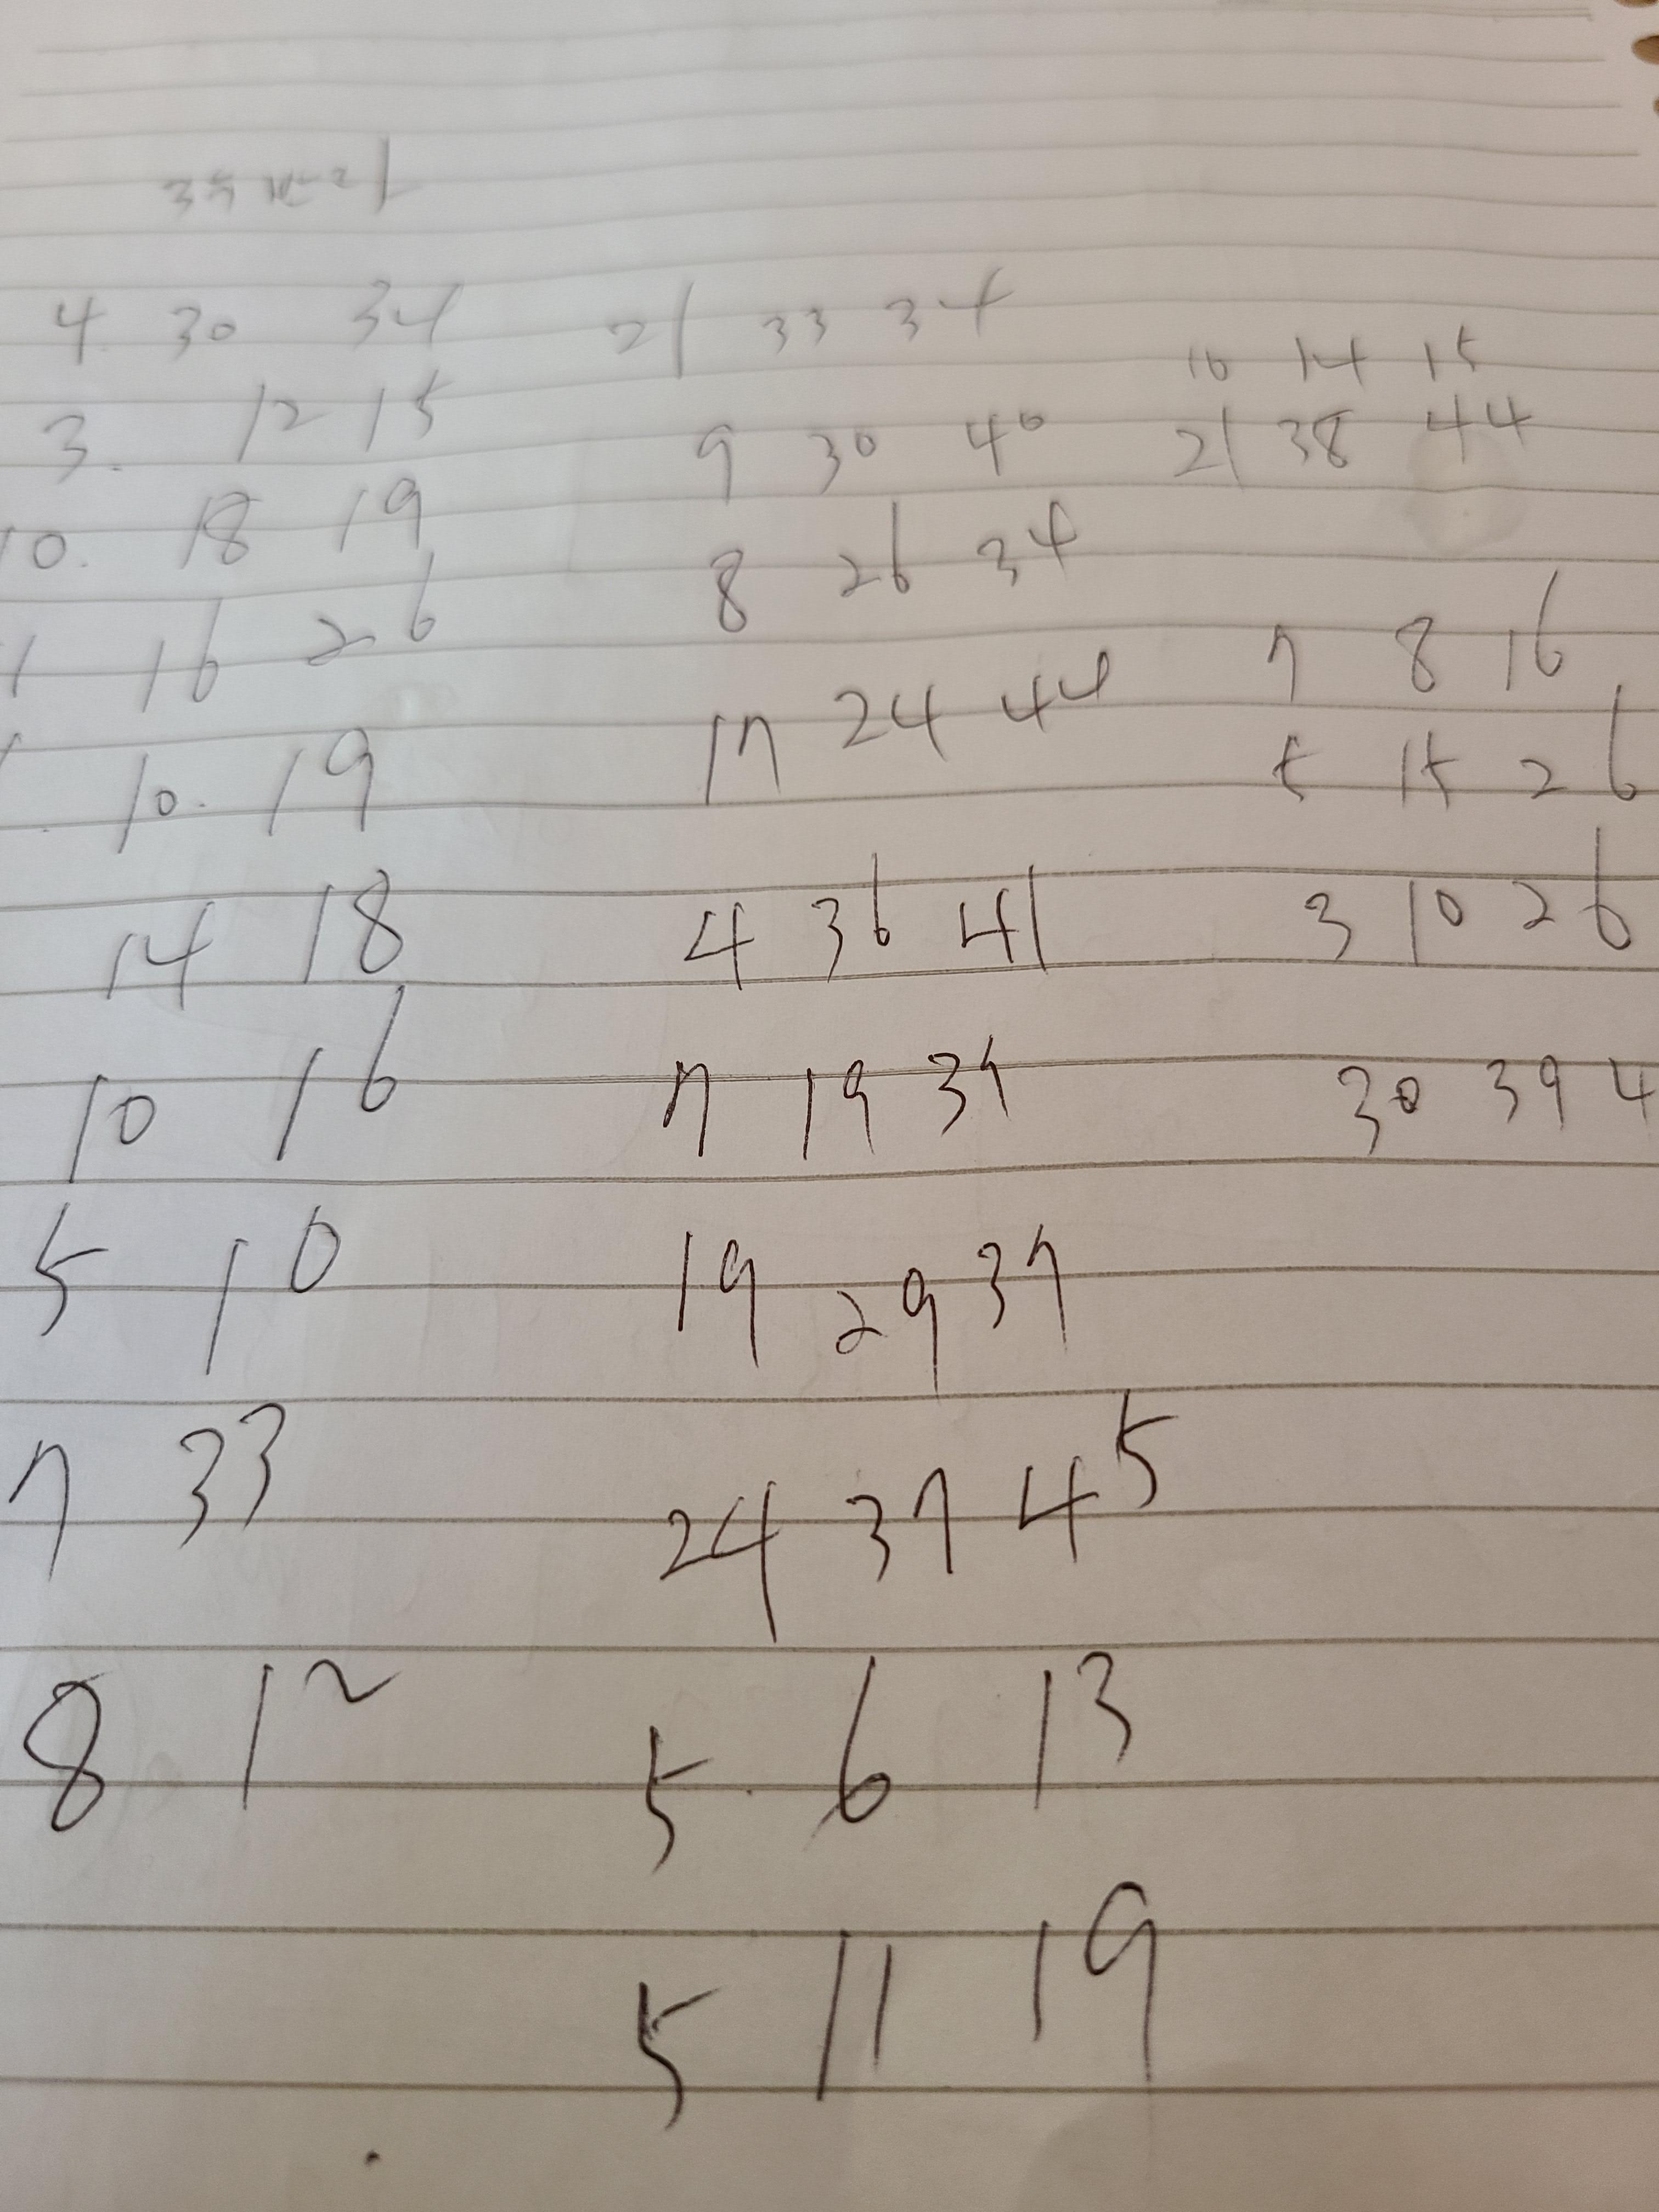 4. 30 34 21 33 34
10 14 15
3. 12 15 9 30 40 21 38 44
10. 18 19 8 26 34
1 16 26 7 8 16
10. 19 17 24 44 5 15 26
14 18 4 36 41 3 10 26
10 16 7 19 37 30 39 4
5 10 19 29 37
7 33 24 37 45
8 12 5. 6 13
5 11 19